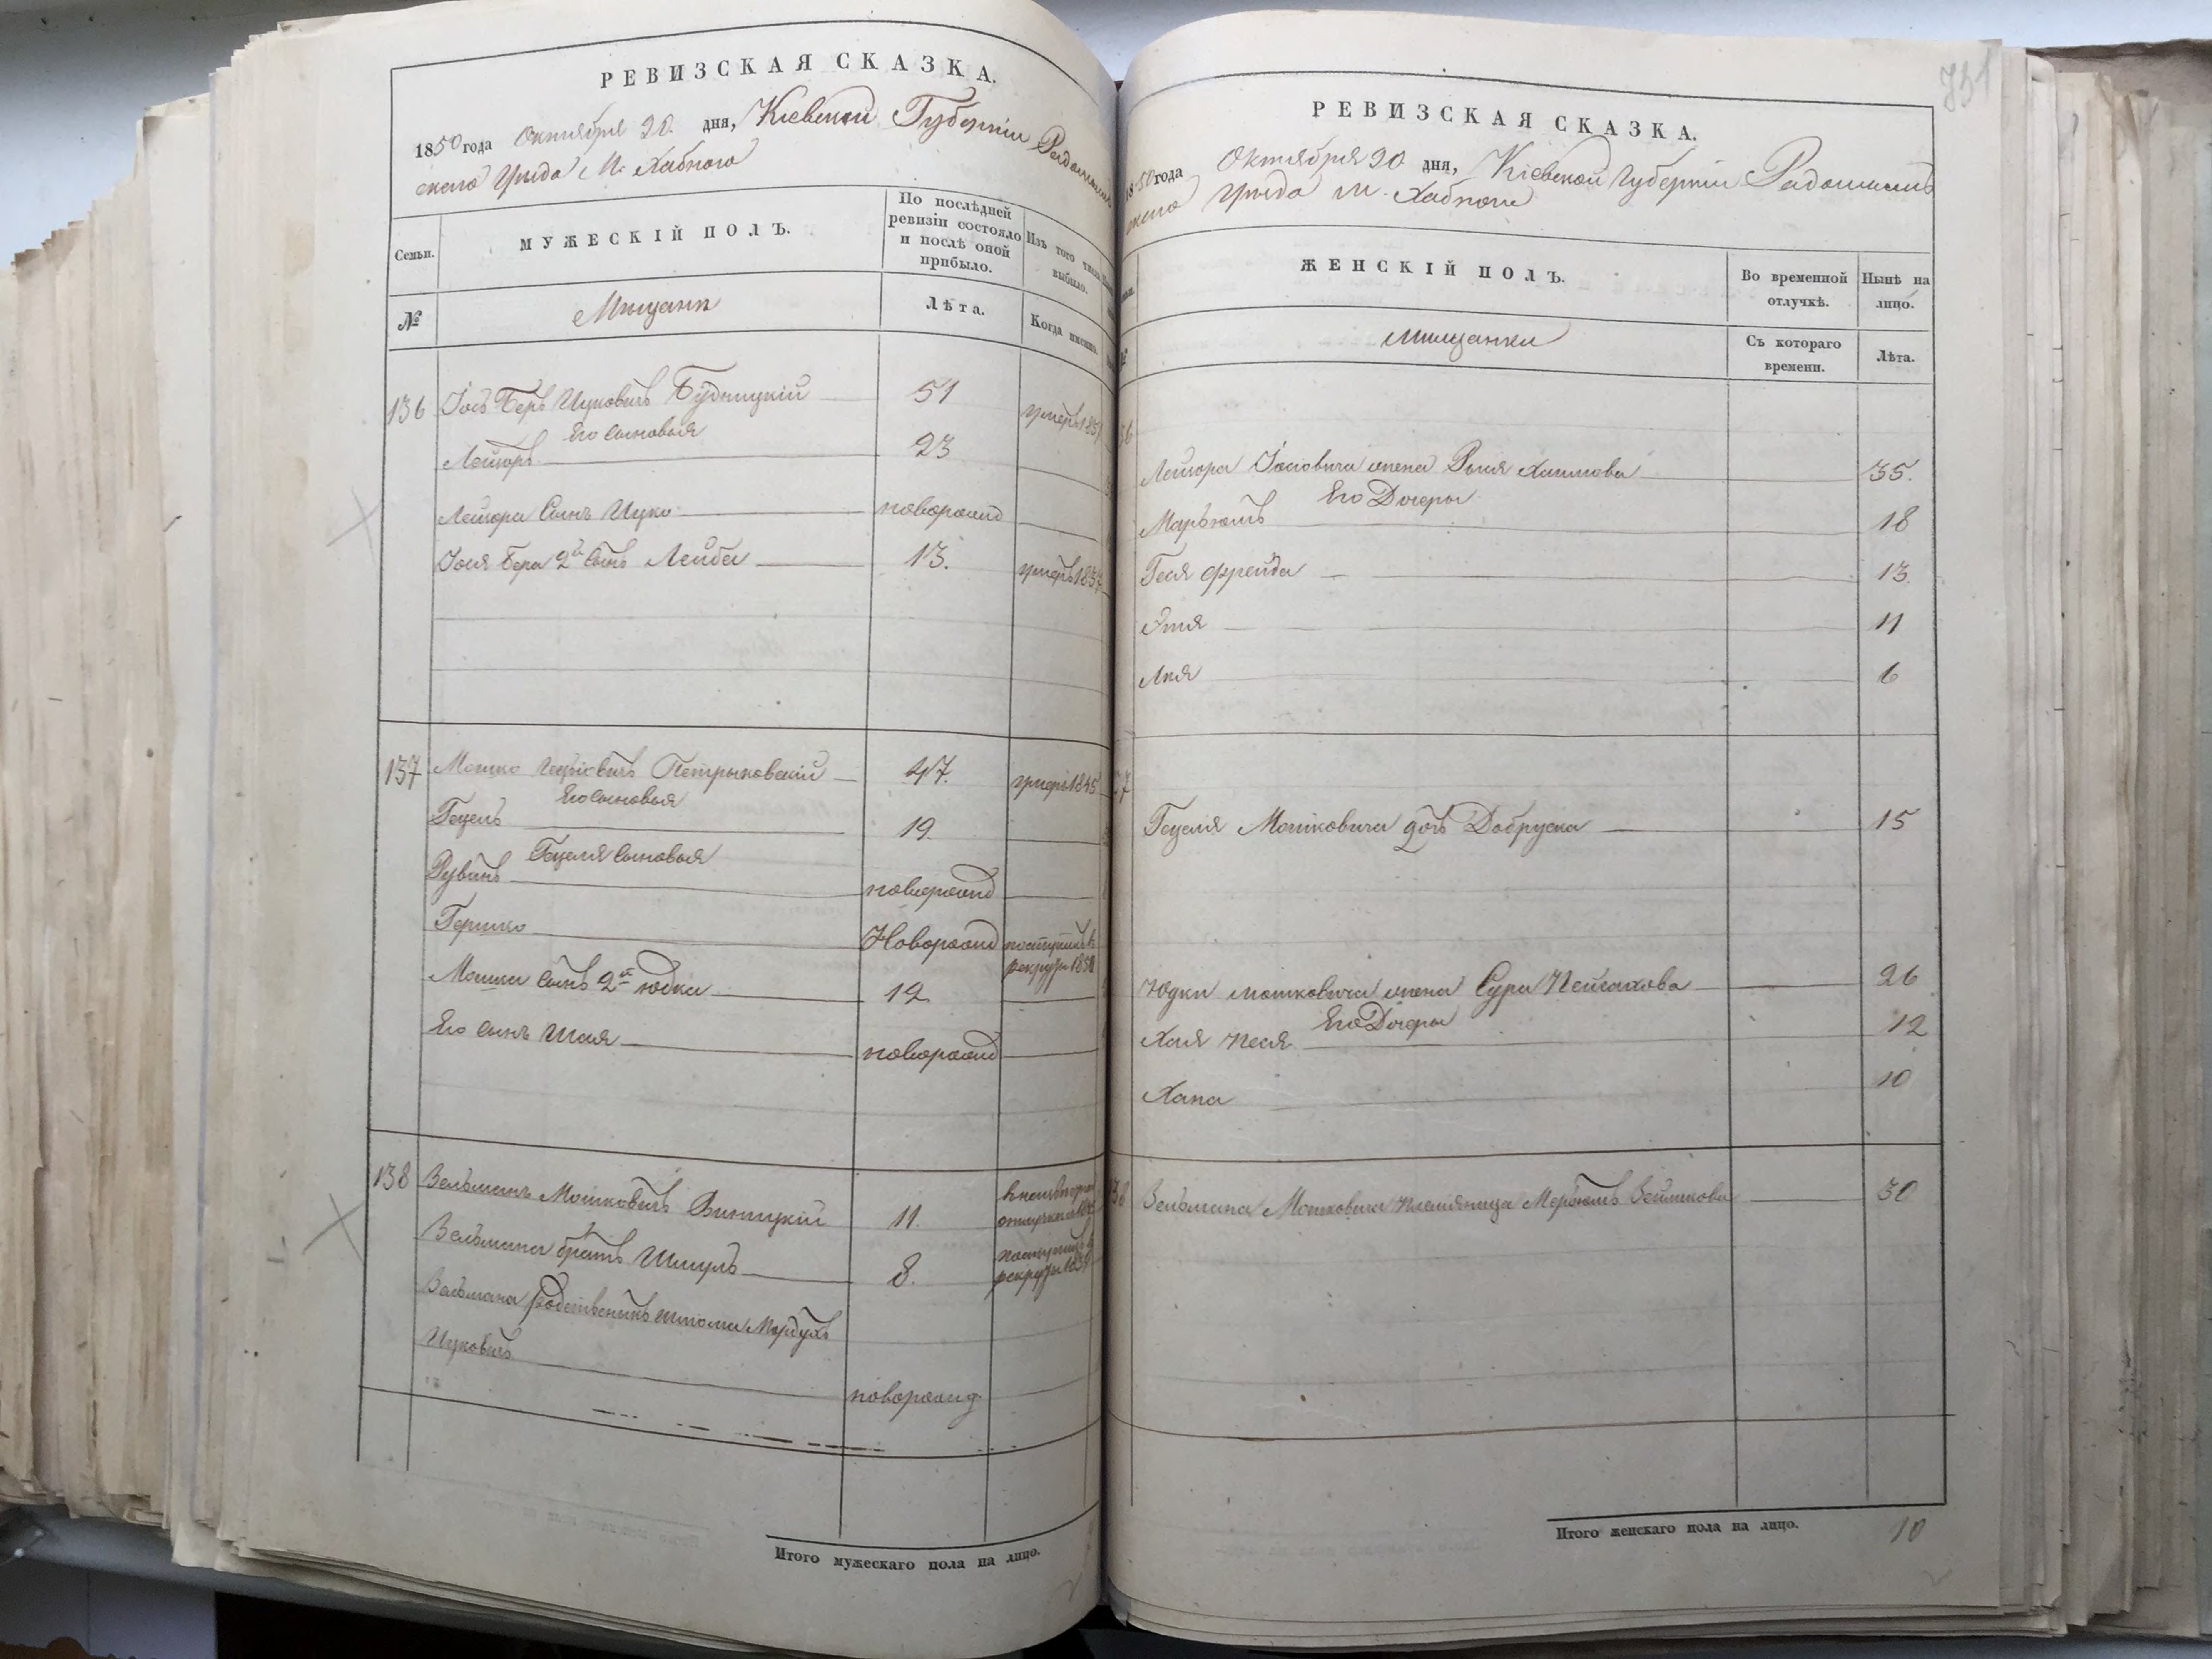 РЕВИЗСКАЯ СКАЗКА.
1850 года Октября 20. дня, Кіевской Губерніи Радомысль
скаго Уѣзда М. Хабного
Семьи.
МУЖЕСКІЙ ПОЛЪ.
По послѣдней
ревизіи состояло
и послѣ оной
прибыло.
Изъ того числа
выбыло.
№
Мѣщане
Лѣта.
Когда именно.
136 Іось Беръ Ицковичъ Будницкій 51 умеръ
Его сыновья
Лейзоръ 23
Лейзора Сынъ Ицко новорожд
Іося Бера 2й Сынъ Лейба 13. умеръ 1837
137 Мошко Петрыковскій 47. умеръ 1845
Его сыновья
Гецель 19
Гецеля Сыновья
Рувинъ новорожд
Гершко Новорожд поступилъ в
рекруты
Мошки Сынъ 2й Юдка 12
Его Сынъ Шая новорожд
138 Зельманъ Мошковичъ Виницкій 11.
Зельмана братъ Шмуль 8. поступилъ в
рекруты
Зельмана родственникъ Мордухъ
Ицковичъ
новорожд
Итого мужескаго пола на лицо.
731
РЕВИЗСКАЯ СКАЗКА.
1850 года Октября 20 дня, Кіевской Губерніи Радомысль
скаго Уѣзда М. Хабного
ЖЕНСКІЙ ПОЛЪ.
Во временной
отлучкѣ.
Нынѣ на
лицо.
№
Мѣщанки
Съ котораго
времени.
Лѣта.
Лейзора Іосіовича жена Рыся Хаимова 35.
Его Дочеры
Марьямъ 18
Гися Фрейда 13
Этя 11
Лея 6
Гецеля Мошковича дочь Добруска 15
Юдки Мошковича жена Сура Пейсахова 26
Его Дочеры
Хая Песя 12
Хана 10
Зельмана Мошковича племянница Мерьямъ 30
Итого женскаго пола на лицо. 10